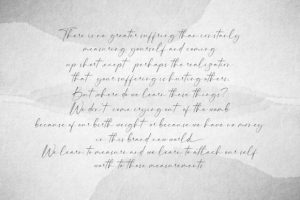 There is no greater suffring than constanly
measuring yourself and coming
up short exept perhaps the realization
that your suffering is hurting others.
But where do we learn these things?
We don't come crying out of the womb
because of our birth weight or because we have no money
in this brand new world
We learn to measure and we learn to attach our self
worth to those measurements